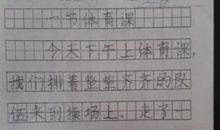 一节体育课
今天下午上体育课,
我们排着整整齐齐的队
伍来到操场上。走了一